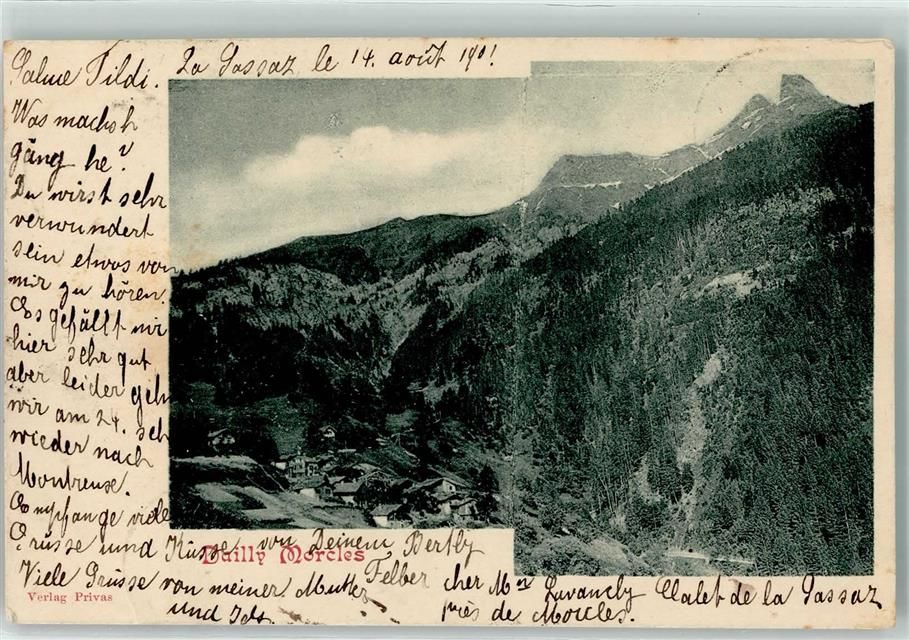 Salue Tildi. La Sassaz le 14. août 1901
Was machsch
gäng he?
Du wirst sehr
verwundert
sein etwas von
mir zu hören.
Es gefällt mir
hier sehr gut
aber leider gehn
wir am 24. sch
wieder nach
Montreux.
Empfange viele
Grüsse und Küsse von Deinem Bertly
Felber
Dailly Morcles
Viele Grüsse von meiner Mutter
und
cher Mr Lavanchy Chalet de la Sassaz
près de Morcles.
Verlag Privas